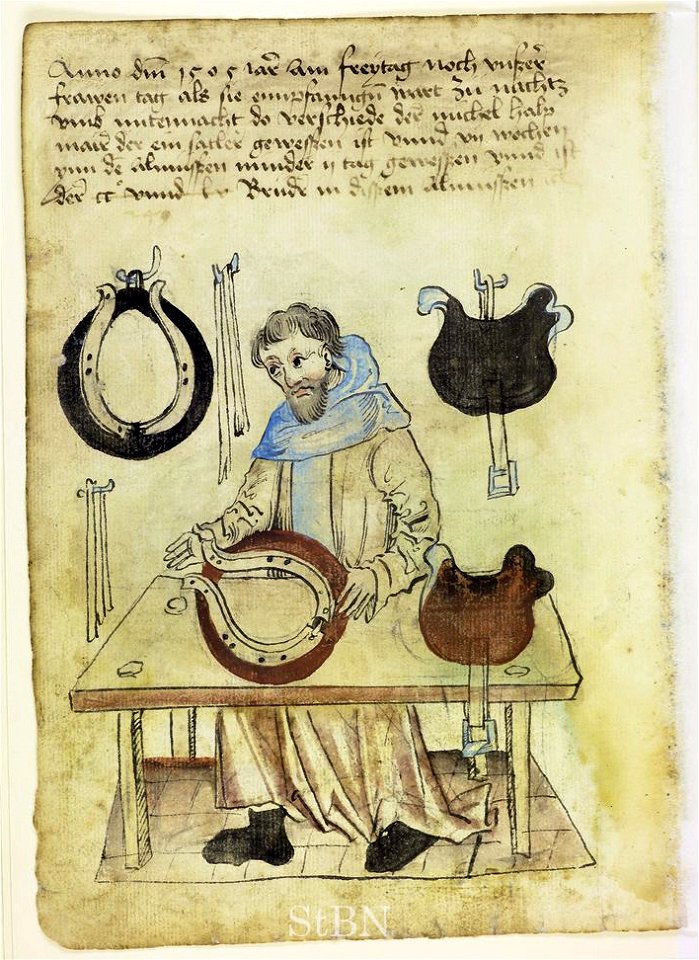 Anno dm̄ 1505 Jar am freytag noch vnßer
frawen tag als sie enpfanngen wart zu nachtz
vmb mitternacht do verschiede der michel halp
mair der ein satler geweßen ist vnnd vij wochen
ynn dē almussen minder ij tag geweßen vnnd ist
der cc vnnd lv Brudr in dissem almussen
StBN